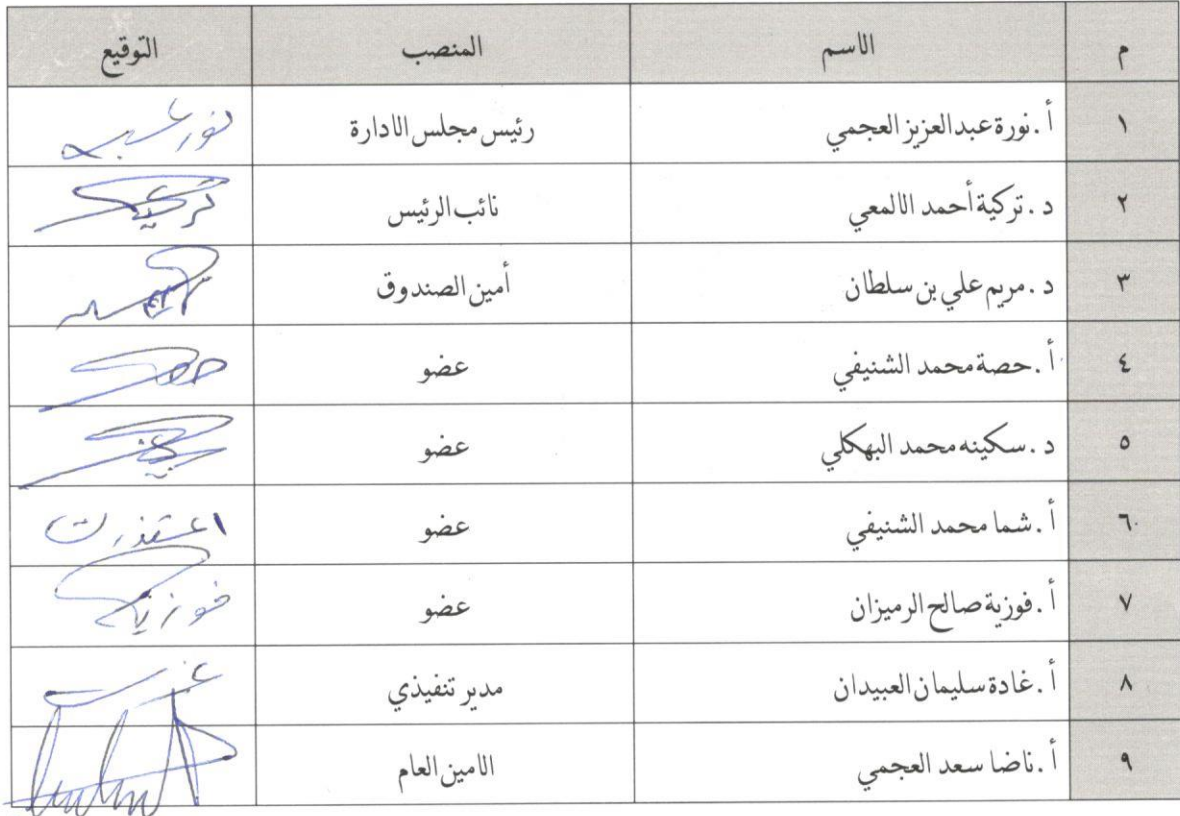 م الاسم المنصب التوقيع
١ أ.نورة عبدالعزيز العجمي رئيس مجلس الادارة
٢ د.تركية أحمد الالمعي نائب الرئيس
٣ د.مريم علي بن سلطان أمين الصندوق
٤ أ.حصة محمد الشنيفي عضو
٥ د.سكينه محمد البهكلي عضو
٦ أ.شما محمد الشنيفي عضو اعتذرت
٧ أ.فوزية صالح الرميزان عضو فوزية
٨ أ.غادة سليمان العبيدان مدير تنفيذي
٩ أ.ناضا سعد العجمي الامين العام